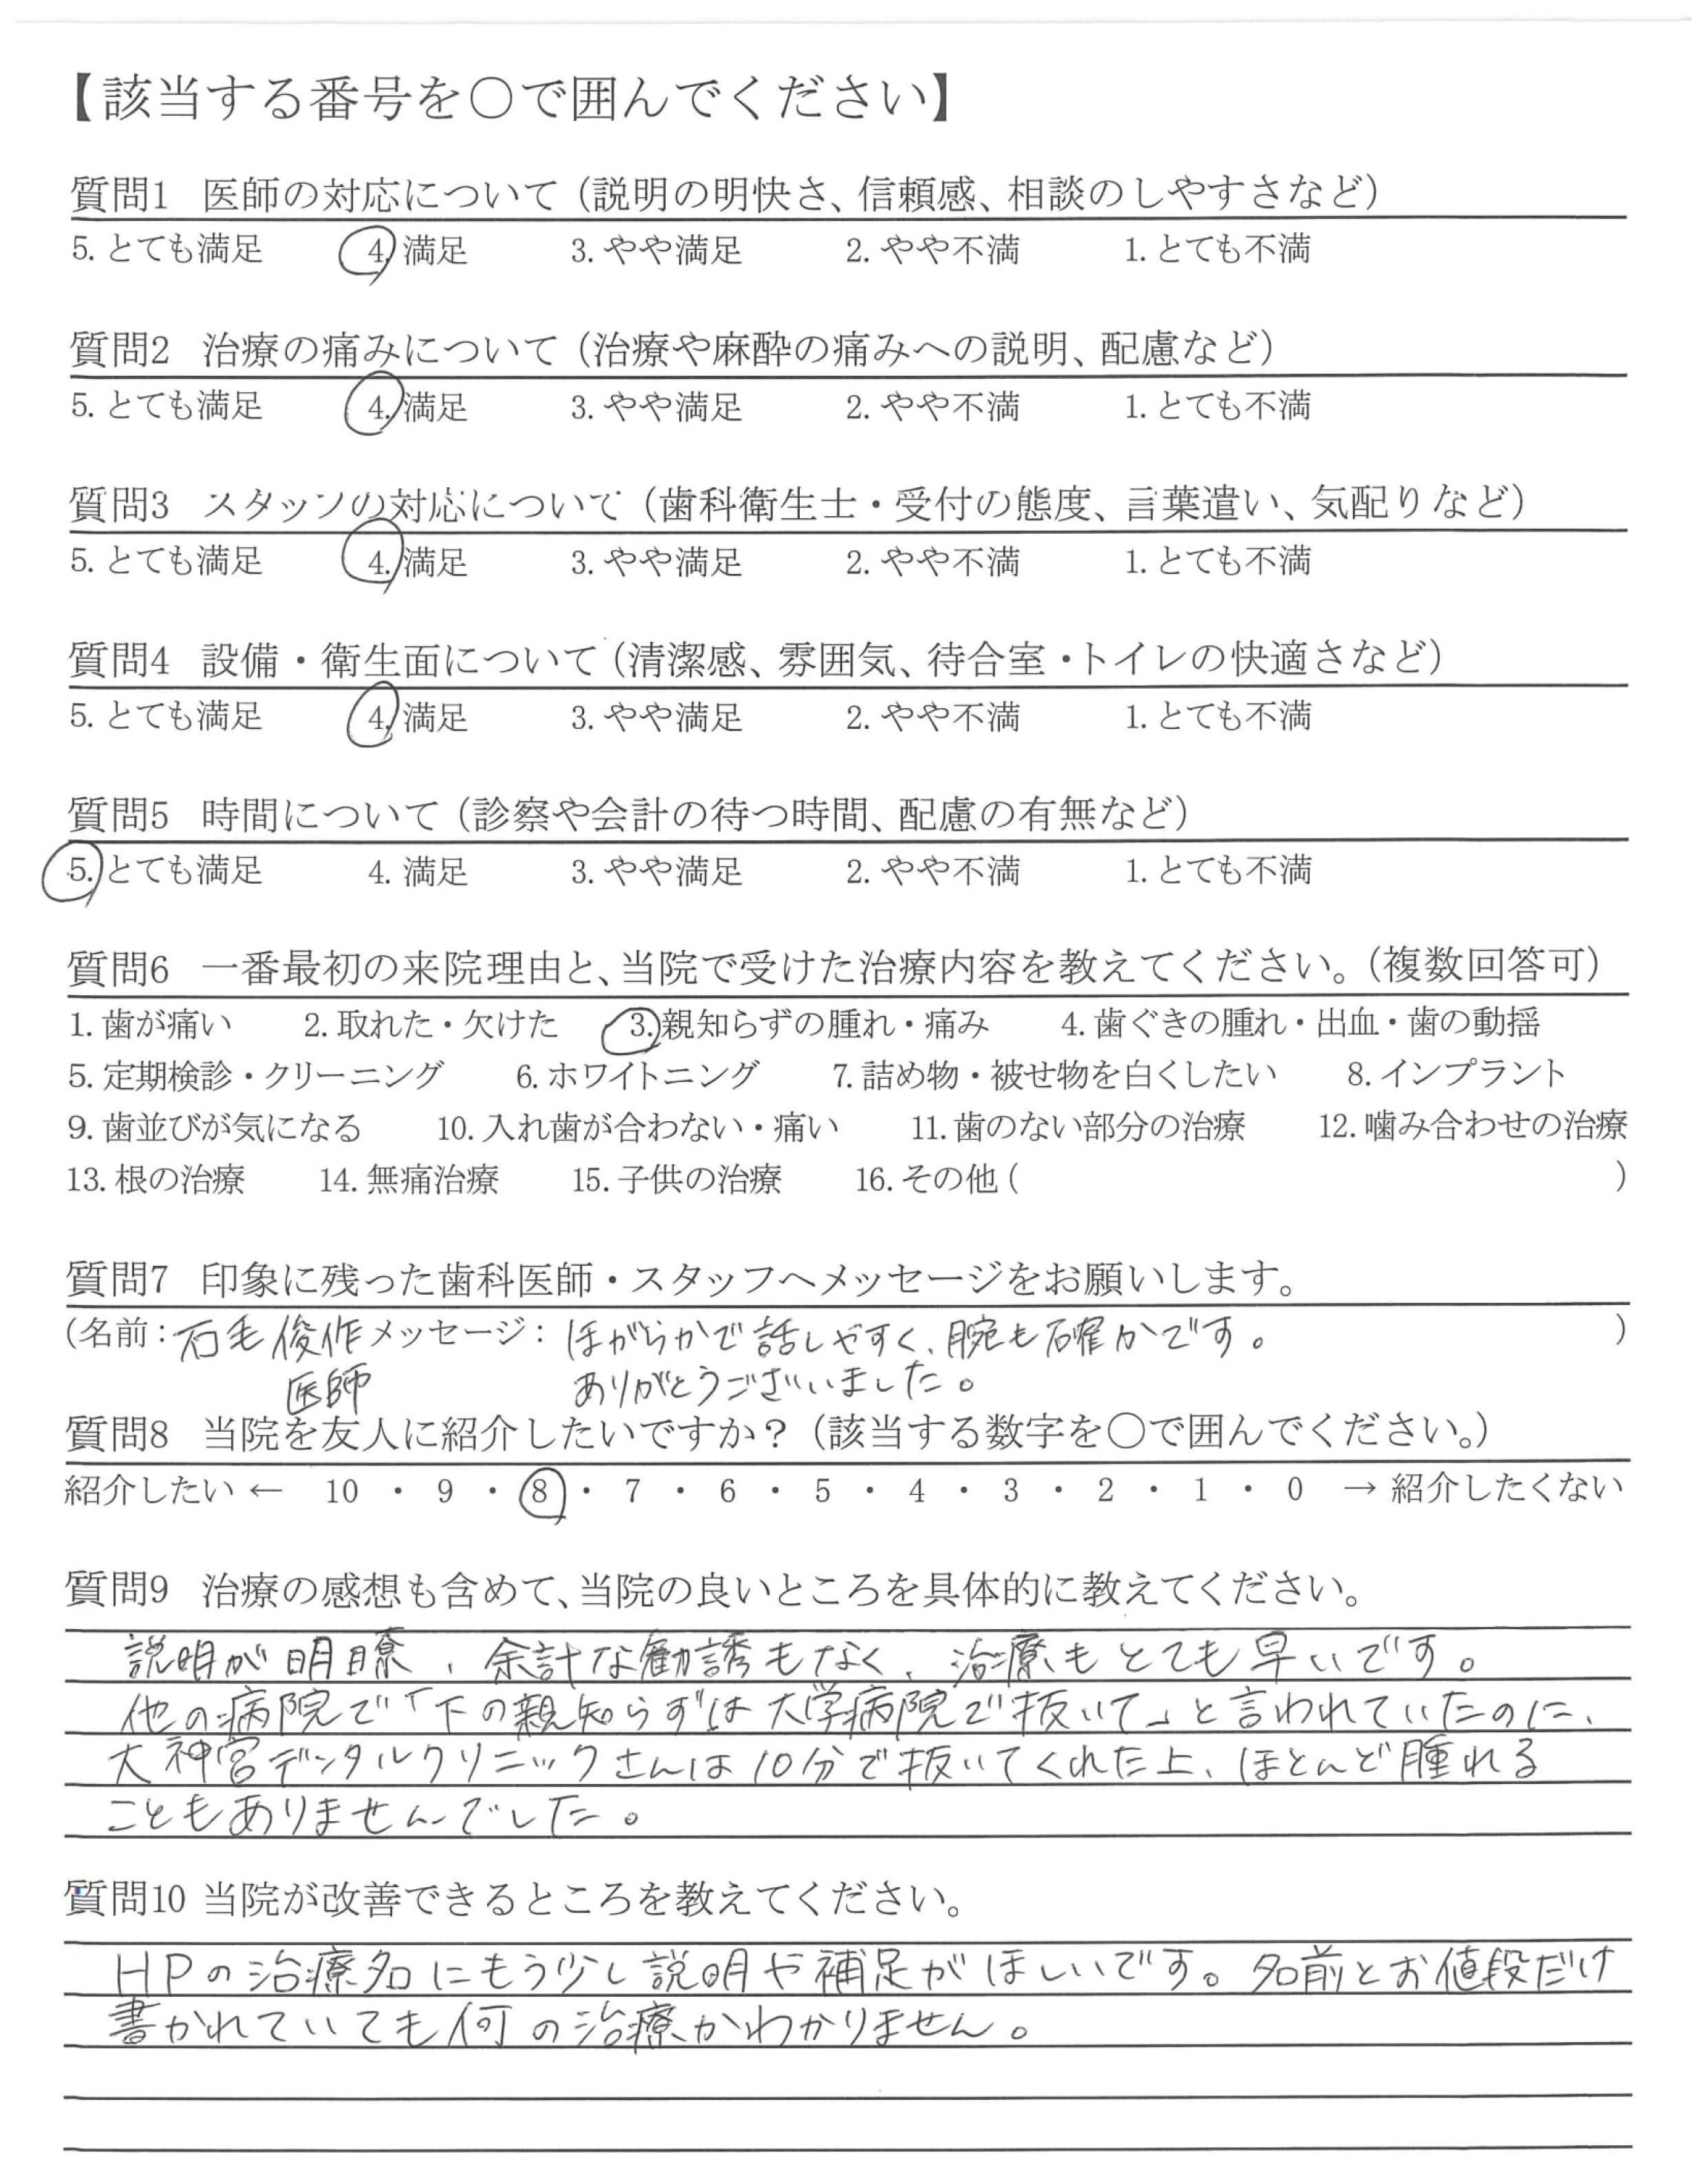 【該当する番号を○で囲んでください】
質問1 医師の対応について（説明の明快さ、信頼感、相談のしやすさなど）
5. とても満足 4. 満足 3. やや満足 2. やや不満 1. とても不満
質問2 治療の痛みについて（治療や麻酔の痛みへの説明、配慮など）
5. とても満足 4. 満足 3. やや満足 2. やや不満 1. とても不満
質問3 スタッフの対応について（歯科衛生士・受付の態度、言葉遣い、気配りなど）
5. とても満足 4. 満足 3. やや満足 2. やや不満 1. とても不満
質問4 設備・衛生面について（清潔感、雰囲気、待合室・トイレの快適さなど）
5. とても満足 4. 満足 3. やや満足 2. やや不満 1. とても不満
質問5 時間について（診察や会計の待つ時間、配慮の有無など）
5. とても満足 4. 満足 3. やや満足 2. やや不満 1. とても不満
質問6 一番最初の来院理由と、当院で受けた治療内容を教えてください。（複数回答可）
1. 歯が痛い 2. 取れた・欠けた 3. 親知らずの腫れ・痛み 4. 歯ぐきの腫れ・出血・歯の動揺
5. 定期検診・クリーニング 6. ホワイトニング 7. 詰め物・被せ物を白くしたい 8. インプラント
9. 歯並びが気になる 10. 入れ歯が合わない・痛い 11. 歯のない部分の治療 12. 噛み合わせの治療
13. 根の治療 14. 無痛治療 15. 子供の治療 16. その他（ ）
質問7 印象に残った歯科医師・スタッフへメッセージをお願いします。
（名前：石毛俊作 メッセージ：ほがらかで話しやすく、腕も確かです。 ）
医師 ありがとうございいました。
質問8 当院を友人に紹介したいですか？（該当する数字を○で囲んでください。）
紹介したい ← 10 ・ 9 ・ 8 ・ 7 ・ 6 ・ 5 ・ 4 ・ 3 ・ 2 ・ 1 ・ 0 → 紹介したくない
質問9 治療の感想も含めて、当院の良いところを具体的に教えてください。
説明が明瞭、余計な勧誘もなく、治療もとても早いです。
他の病院で「下の親知らずは大学病院で抜いて」と言われていたのに、
大神宮デンタルクリニックさんは10分で抜いてくれた上、ほとんど腫れる
こともありませんでした。
質問10 当院が改善できるところを教えてください。
HPの治療名にもう少し説明や補足がほしいです。名前とお値段だけ
書かれていても何の治療かわかりません。